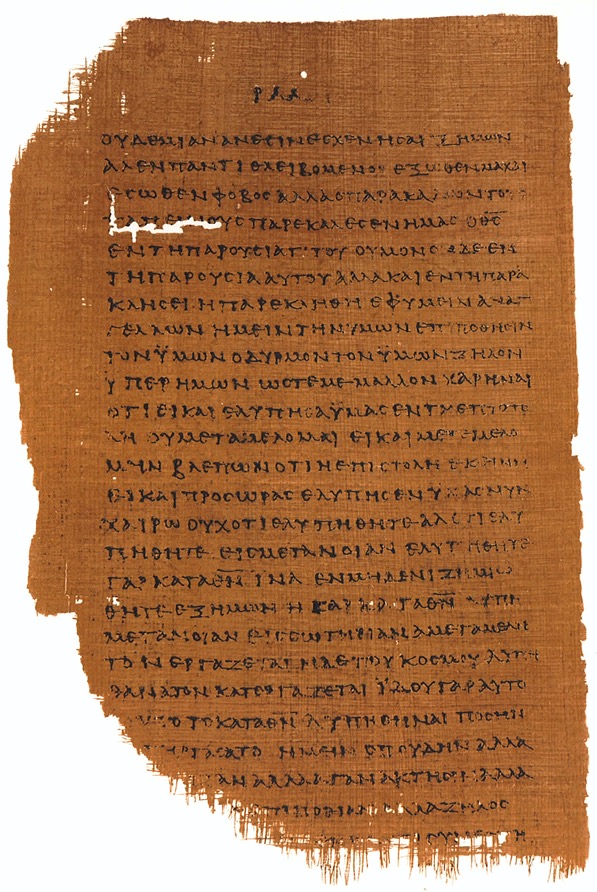 ΡΛΑ
ΟΥΔΕΜΙΑΝ ΑΝΕΣΙΝ ΕΣΧΕΝ Η ΣΑΡΞ ΗΜΩΝ
ΑΛ ΕΝ ΠΑΝΤΙ ΘΛΕΙΒΟΜΕΝΟΙ ΕΞΩΘΕΝ ΜΑΧΑΙ
ΕΣΩΘΕΝ ΦΟΒΟΣ ΑΛΛΑ Ο ΠΑΡΑΚΑΛΩΝ ΤΟΥΣ
ΠΑΡΕΚΑΛΕΣΕΝ ΗΜΑΣ Ο ΘΣ
ΕΝ ΤΗ ΠΑΡΟΥΣΙΑ ΤΙΤΟΥ ΟΥ ΜΟΝΟΝ ΔΕ ΕΝ
ΤΗ ΠΑΡΟΥΣΙΑ ΑΥΤΟΥ ΑΛΛΑ ΚΑΙ ΕΝ ΤΗ ΠΑΡΑ
ΚΛΗΣΕΙ Η ΠΑΡΕΚΛΗΘΗ ΕΦ ΥΜΕΙΝ ΑΝΑΓ
ΓΕΛΛΩΝ ΗΜΕΙΝ ΤΗΝ ΥΜΩΝ ΕΠΙΠΟΘΗΣΙΝ
ΤΟΝ ΫΜΩΝ ΟΔΥΡΜΟΝ ΤΟΝ ΫΜΩΝ ΖΗΛΟΝ
ΥΠΕΡ ΗΜΩΝ ΩΣΤΕ ΜΕ ΜΑΛΛΟΝ ΧΑΡΗΝΑΙ
ΟΤΙ ΕΙ ΚΑΙ ΕΛΥΠΗΣΑ ΫΜΑΣ ΕΝ ΤΗ ΕΠΙΣΤΟ
ΛΗ ΟΥ ΜΕΤΑΜΕΛΟΜΑΙ ΕΙ ΚΑΙ ΜΕΤΕΜΕΛΟ
ΜΗΝ ΒΛΕΠΩΝ ΟΤΙ Η ΕΠΙΣΤΟΛΗ ΕΚΕΙΝΗ
ΕΙ ΚΑΙ ΠΡΟΣ ΩΡΑΣ ΕΛΥΠΗΣΕΝ ΥΜΑΣ ΝΥΝ
ΧΑΙΡΩ ΟΥΧ ΟΤΙ ΕΛΥΠΗΘΗΤΕ ΑΛΛ ΟΤΙ ΕΛΥ
ΠΗΘΗΤΕ ΕΙΣ ΜΕΤΑΝΟΙΑΝ ΕΛΥΠΗΘΗΤΕ
ΓΑΡ ΚΑΤΑ ΘΝ ΪΝΑ ΕΝ ΜΗΔΕΝΙ ΖΗΜΙΩ
ΘΗΤΕ ΕΞ ΗΜΩΝ Η ΓΑΡ ΚΑΤΑ ΘΝ ΛΥΠΗ
ΜΕΤΑΝΟΙΑΝ ΕΙΣ ΣΩΤΗΡΙΑΝ ΑΜΕΤΑΜΕΛΗ
ΤΟΝ ΕΡΓΑΖΕΤΑΙ Η ΔΕ ΤΟΥ ΚΟΣΜΟΥ ΛΥΠΗ
ΘΑΝΑΤΟΝ ΚΑΤΕΡΓΑΖΕΤΑΙ ΪΔΟΥ ΓΑΡ ΑΥΤΟ
ΤΟΥΤΟ ΤΟ ΚΑΤΑ ΘΝ ΛΥΠΗΘΗΝΑΙ ΠΟΣΗΝ
ΗΜΕΙΝ ΣΠΟΥΔΗΝ ΑΛΛΑ
ΑΝ ΑΛΛΑ ΑΓΑΝΑΚΤΗΣΙΝ ΑΛΛΑ
ΑΛΛΑ ΖΗΛΟΣ